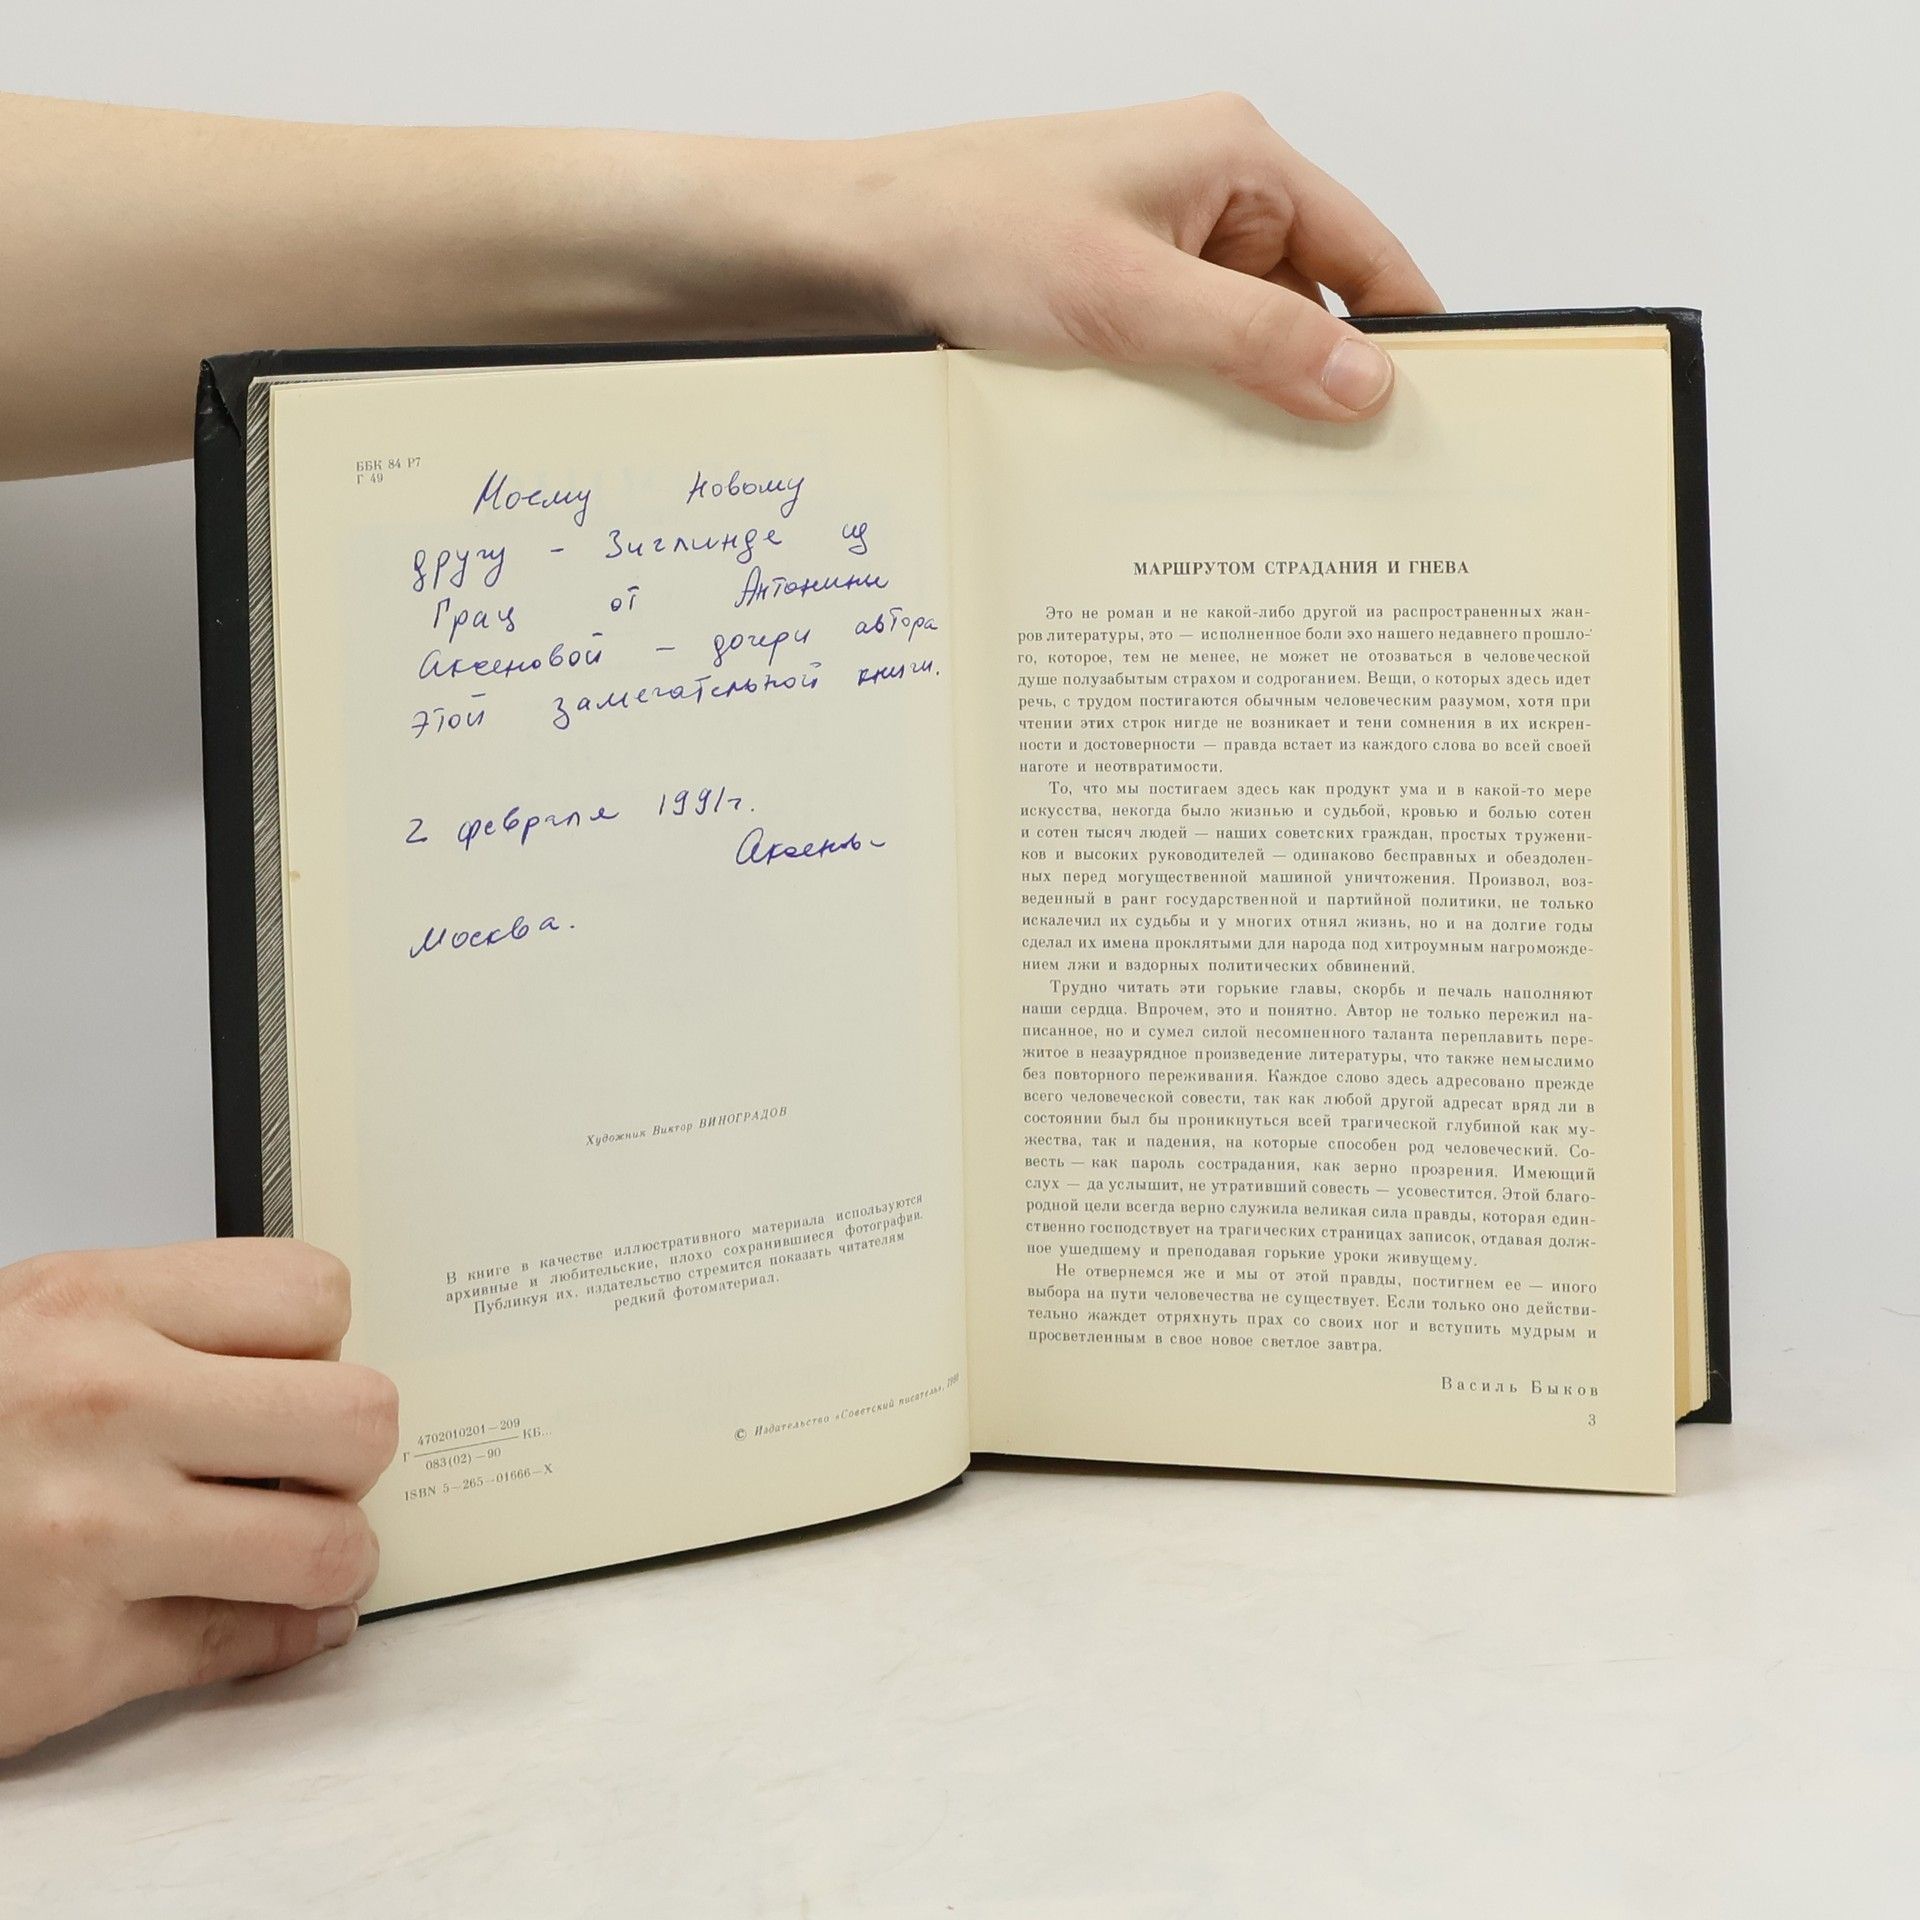 ББК 84 Р7
Г 49
Моему новому
другу - Зиглинде из
Грац от Антонины
Аксеновой - дочери автора
этой замечательной книги.
2 февраля 1991г.
Москва.
Художник Виктор ВИНОГРАДОВ
В книге в качестве иллюстративного материала используются
архивные и любительские, плохо сохранившиеся фотографии.
Публикуя их, издательство стремится показать читателям
редкий фотоматериал.
Г 4702010201—209
083(02)—90 КБ...
ISBN 5—265—01666—X
© Издательство «Советский писатель», 1990
МАРШРУТОМ СТРАДАНИЯ И ГНЕВА
Это не роман и не какой-либо другой из распространенных жан-
ров литературы, это — исполненное боли эхо нашего недавнего прошло-
го, которое, тем не менее, не может не отозваться в человеческой
душе полузабытым страхом и содроганием. Вещи, о которых здесь идет
речь, с трудом постигаются обычным человеческим разумом, хотя при
чтении этих строк нигде не возникает и тени сомнения в их искрен-
ности и достоверности — правда встает из каждого слова во всей своей
наготе и неотвратимости.
То, что мы постигаем здесь как продукт ума и в какой-то мере
искусства, некогда было жизнью и судьбой, кровью и болью сотен
и сотен тысяч людей — наших советских граждан, простых тружени-
ков и высоких руководителей — одинаково бесправных и обездолен-
ных перед могущественной машиной уничтожения. Произвол, воз-
веденный в ранг государственной и партийной политики, не только
искалечил их судьбы и у многих отнял жизнь, но и на долгие годы
сделал их имена проклятыми для народа под хитроумным нагроможде-
нием лжи и вздорных политических обвинений.
Трудно читать эти горькие главы, скорбь и печаль наполняют
наши сердца. Впрочем, это и понятно. Автор не только пережил на-
писанное, но и сумел силой несомненного таланта переплавить пере-
житое в незаурядное произведение литературы, что также немыслимо
без повторного переживания. Каждое слово здесь адресовано прежде
всего человеческой совести, так как любой другой адресат вряд ли в
состоянии был бы проникнуться всей трагической глубиной как му-
жества, так и падения, на которые способен род человеческий. Со-
весть — как пароль сострадания, как зерно прозрения. Имеющий
слух — да услышит, не утративший совесть — усовестится. Этой благо-
родной цели всегда верно служила великая сила правды, которая един-
ственно господствует на трагических страницах записок, отдавая долж-
ное ушедшему и преподавая горькие уроки живущему.
Не отвернемся же и мы от этой правды, постигнем ее — иного
выбора на пути человечества не существует. Если только оно действи-
тельно жаждет отряхнуть прах со своих ног и вступить мудрым и
просветленным в свое новое светлое завтра.
Василь Быков
3